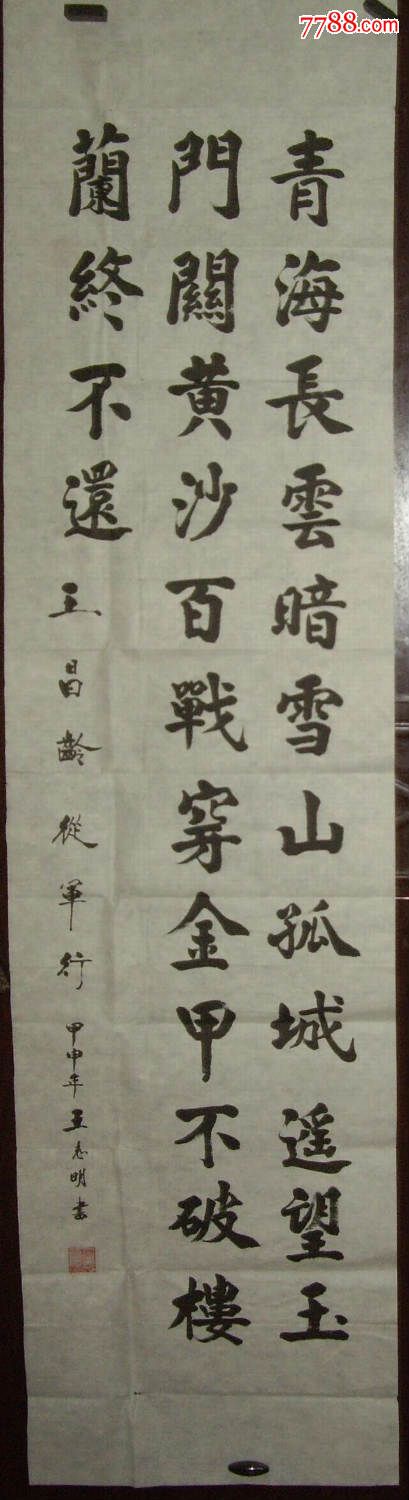 7788.com
青海長雲暗雪山孤城遥望玉
門關黄沙百戰穿金甲不破樓
蘭終不還
王昌齡從軍行
甲申年王志明書